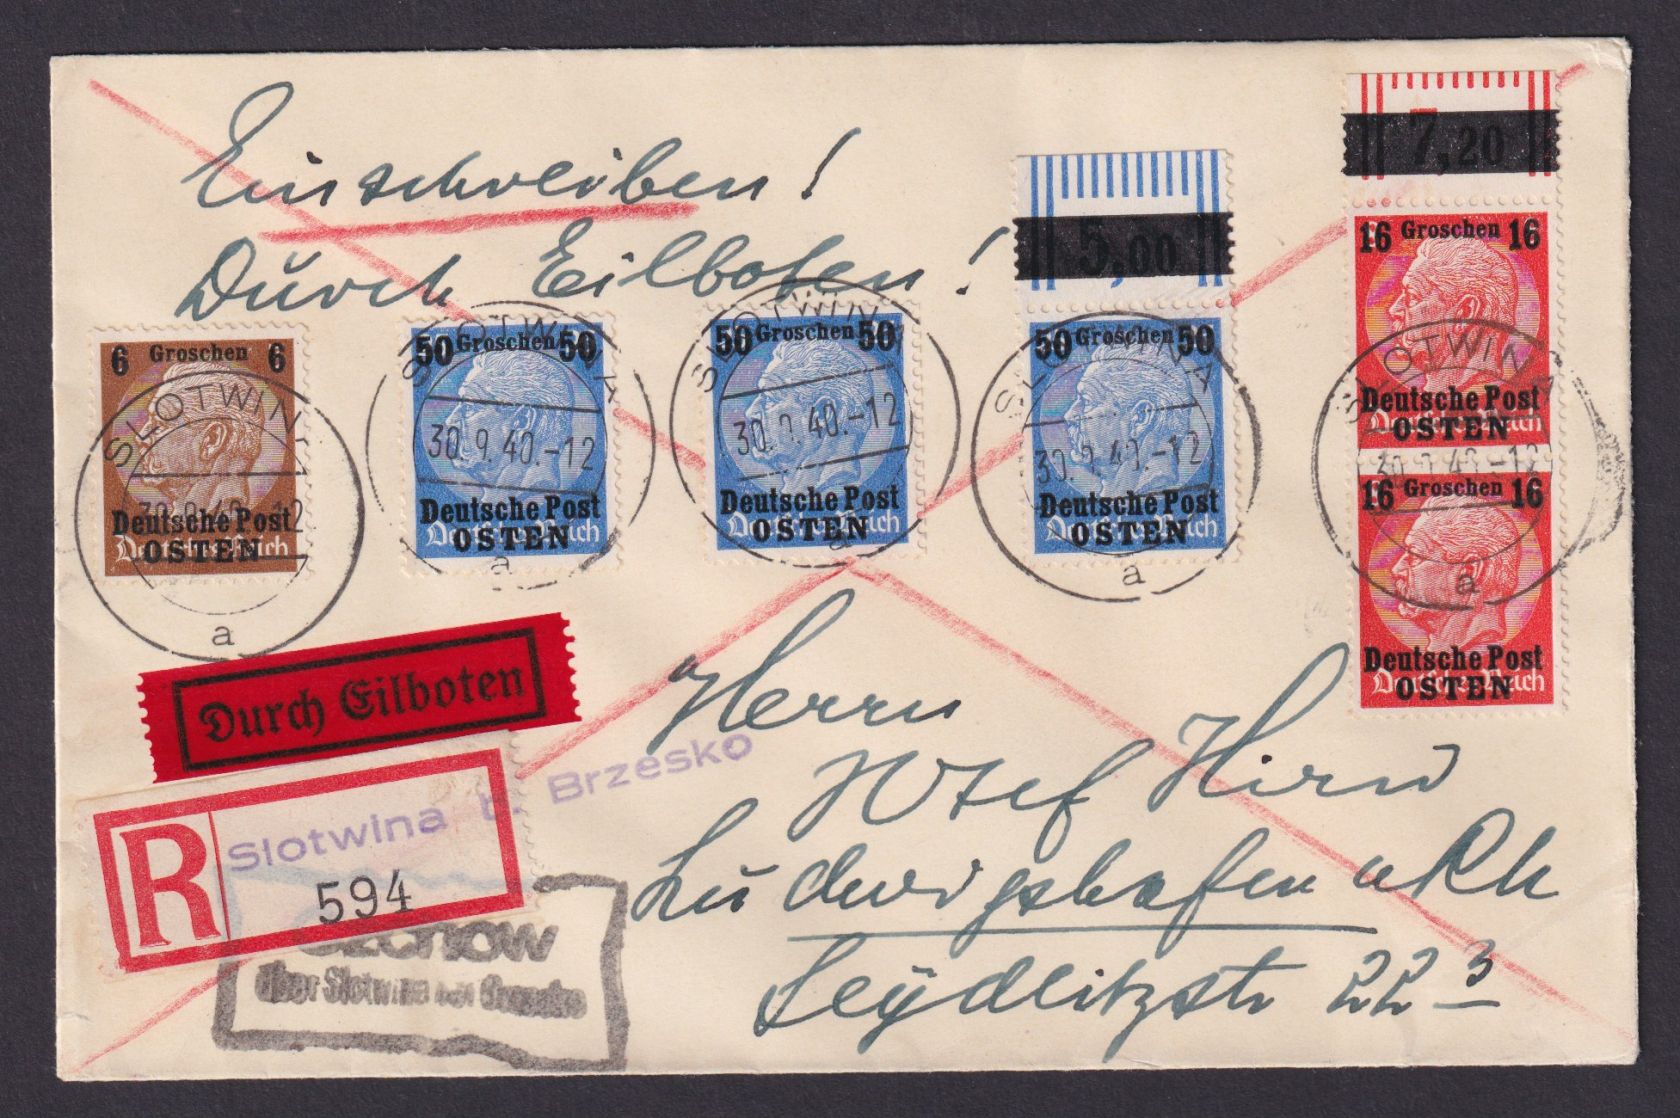 Einschreiben!
Durch Eilboten!
5,00
7,20
6 Groschen 6
Deutsche Post
OSTEN
Deutsches Reich
SLOTWINA
30.9.40.-12
a
50 Groschen 50
Deutsche Post
OSTEN
Deutsches Reich
SLOTWINA
30.9.40.-12
a
50 Groschen 50
Deutsche Post
OSTEN
Deutsches Reich
SLOTWINA
30.9.40.-12
a
50 Groschen 50
Deutsche Post
OSTEN
Deutsches Reich
SLOTWINA
30.9.40.-12
a
16 Groschen 16
Deutsche Post
OSTEN
Deutsches Reich
SLOTWINA
30.9.40.-12
a
16 Groschen 16
Deutsche Post
OSTEN
Deutsches Reich
Durch Eilboten
R
Slotwina b. Brzesko
594
über Slotwina bei
Herrn
Josef Hirn
Ludwigshafen a Rh
Seydlitzstr 22 3